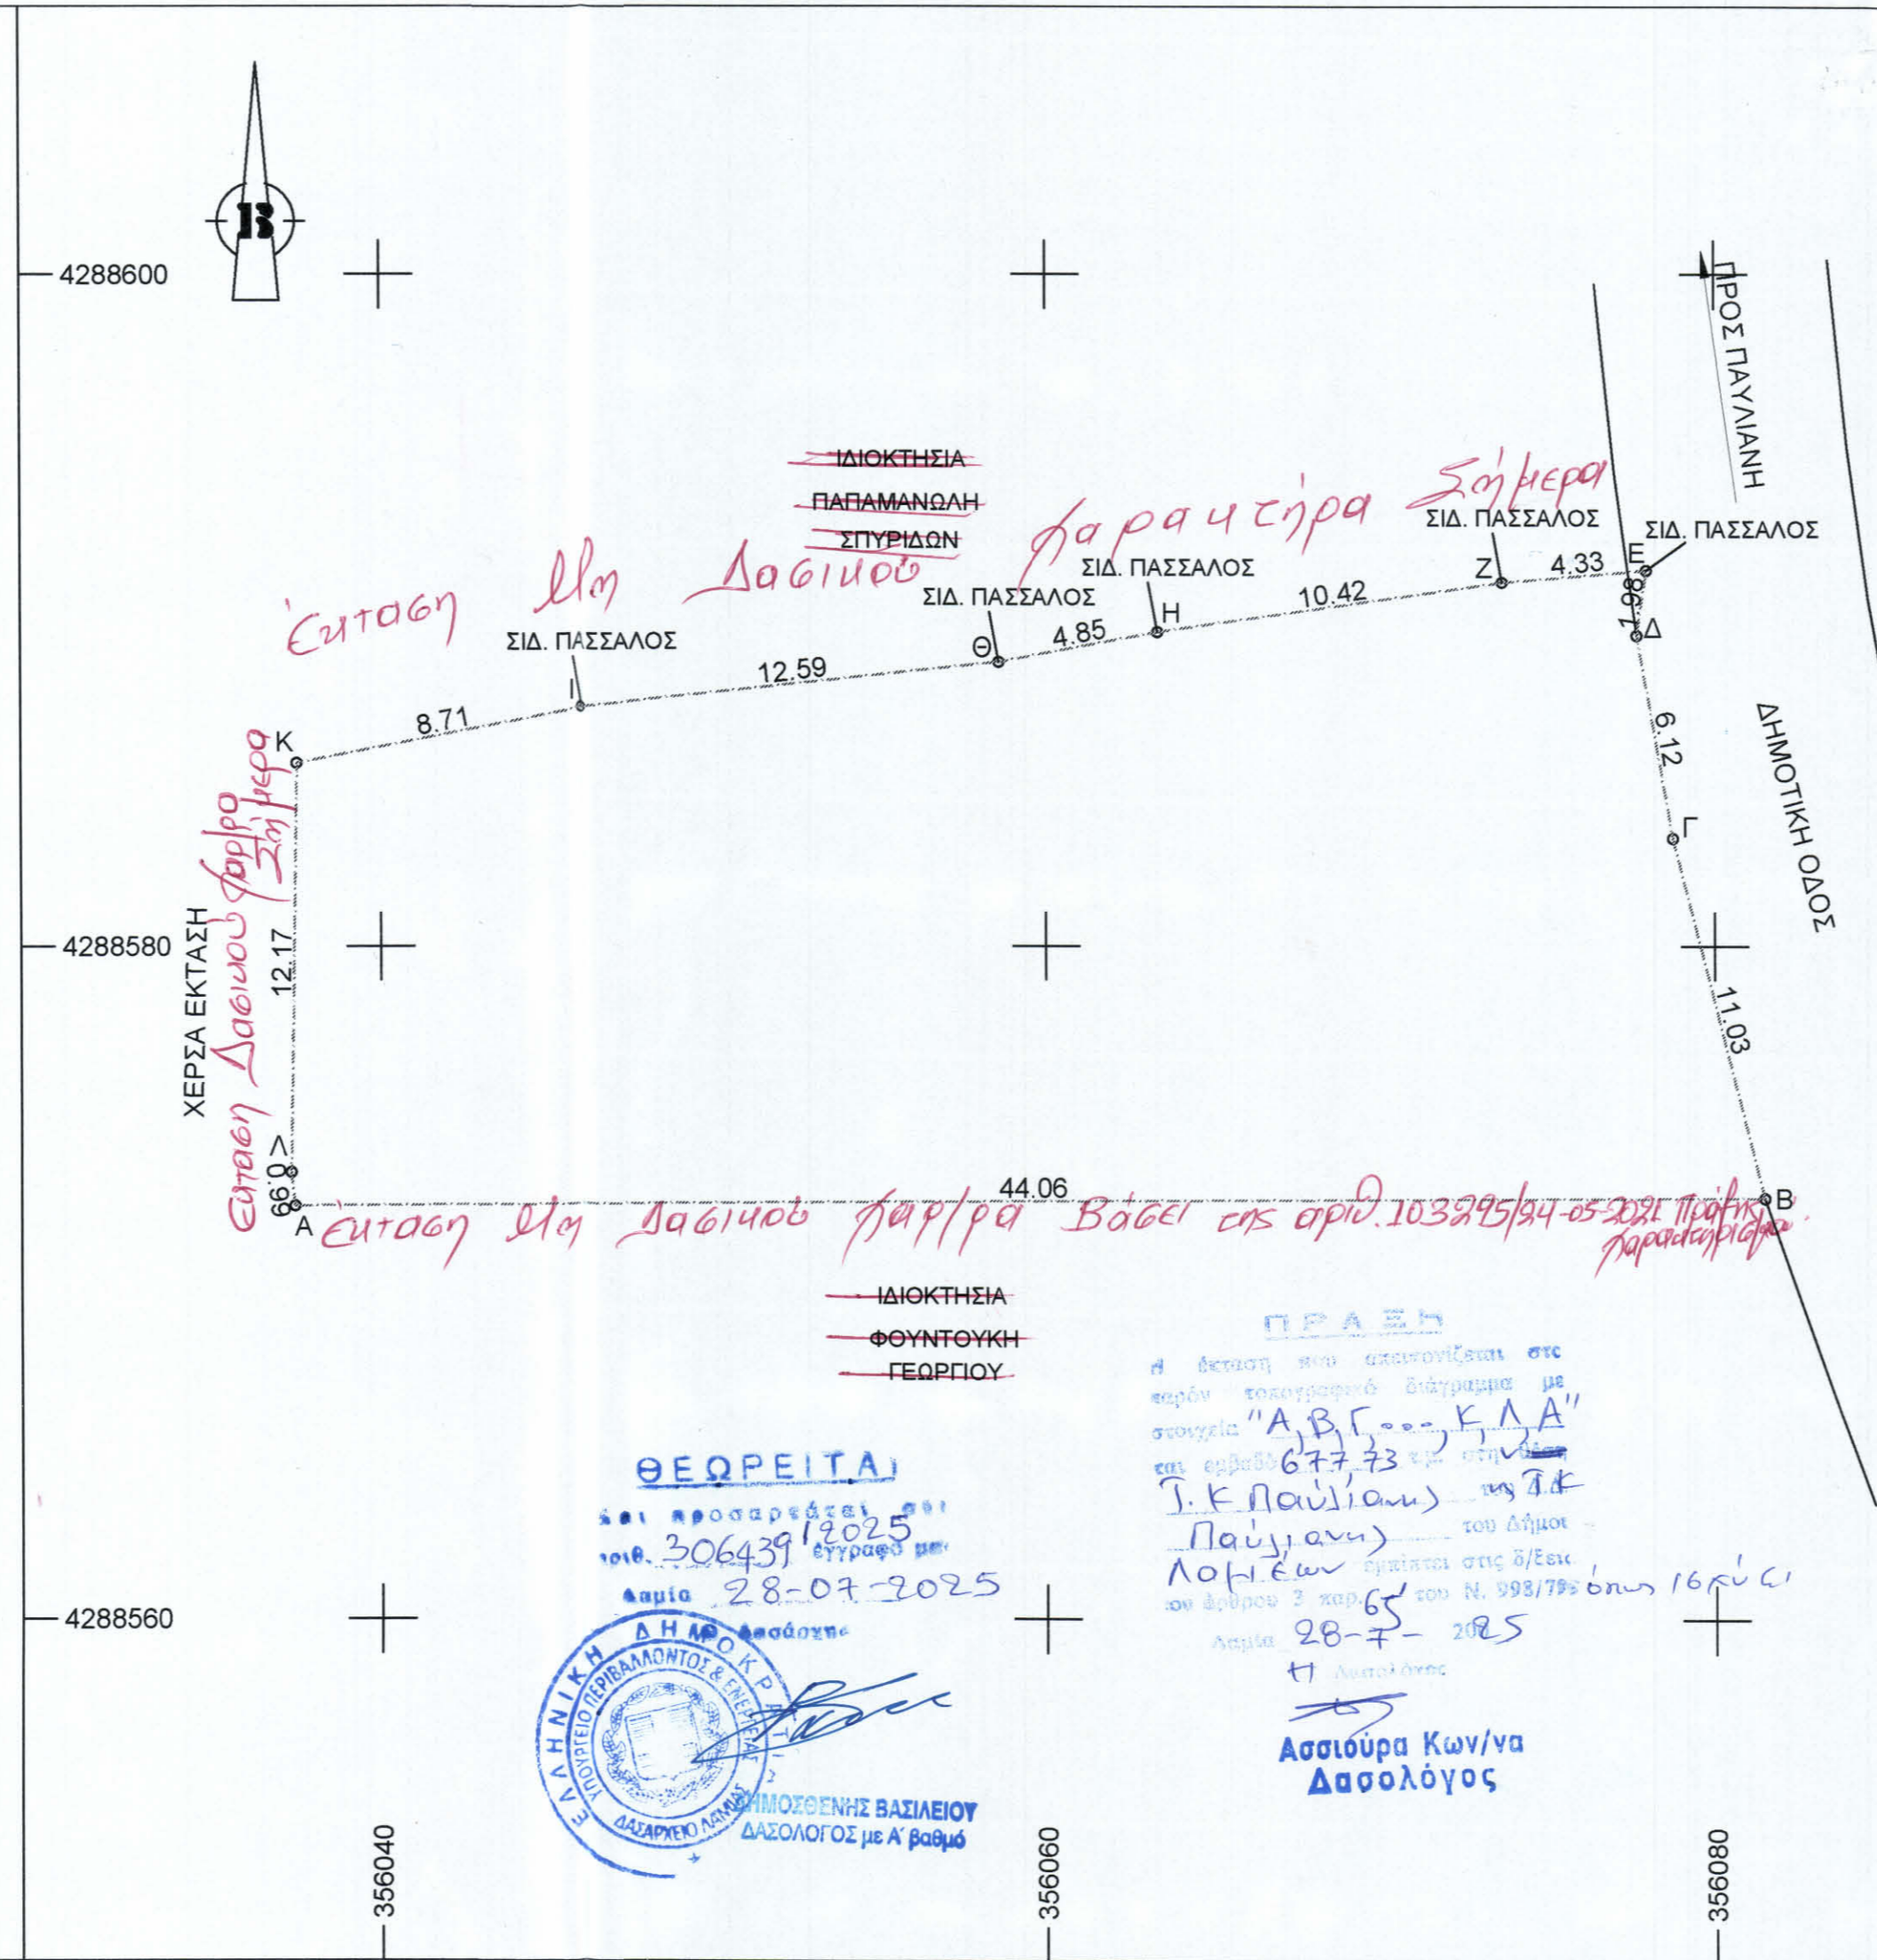 Β
4288600
ΠΡΟΣ ΠΑΥΛΙΑΝΗ
ΙΔΙΟΚΤΗΣΙΑ
ΠΑΠΑΜΑΝΩΛΗ
ΣΠΥΡΙΔΩΝ
Έκταση Μη Δασικού χαρακτήρα Σήμερα
ΣΙΔ. ΠΑΣΣΑΛΟΣ
ΣΙΔ. ΠΑΣΣΑΛΟΣ
ΣΙΔ. ΠΑΣΣΑΛΟΣ
ΣΙΔ. ΠΑΣΣΑΛΟΣ
ΣΙΔ. ΠΑΣΣΑΛΟΣ
Κ 8.71 Ι 12.59 Θ 4.85 Η 10.42 Ζ 4.33 Ε
1.98
Δ
6.12
Γ
ΔΗΜΟΤΙΚΗ ΟΔΟΣ
11.03
4288580
ΧΕΡΣΑ ΕΚΤΑΣΗ
Έκταση Δασικού χαρ/ρα
Σήμερα
12.17
Λ
0.99
Α 44.06 Β
Έκταση Μη Δασικού χαρ/ρα Βάσει της αριθ. 103295/24-05-2021 Πράξης
χαρακτηρισμού
ΙΔΙΟΚΤΗΣΙΑ
ΦΟΥΝΤΟΥΚΗ
ΓΕΩΡΓΙΟΥ
ΘΕΩΡΕΙΤΑΙ
και προσαρτάται στο
αριθ. 306439/2025 έγγραφό μας
Λαμία 28-07-2025
Ο Δασάρχης
ΕΛΛΗΝΙΚΗ ΔΗΜΟΚΡΑΤΙΑ
ΥΠΟΥΡΓΕΙΟ ΠΕΡΙΒΑΛΛΟΝΤΟΣ & ΕΝΕΡΓΕΙΑΣ
ΔΑΣΑΡΧΕΙΟ ΛΑΜΙΑΣ
ΔΗΜΟΣΘΕΝΗΣ ΒΑΣΙΛΕΙΟΥ
ΔΑΣΟΛΟΓΟΣ με Α΄ βαθμό
ΠΡΑΞΗ
Η έκταση που απεικονίζεται στο
παρόν τοπογραφικό διάγραμμα με
στοιχεία "Α,Β,Γ...,Κ,Λ,Α"
και εμβαδό 677,73 τ.μ. στη θέση
Τ.Κ Παύλιανης της Τ.Κ
Παύλιανης του Δήμου
Λαμιέων εμπίπτει στις δ/ξεις
του άρθρου 3 παρ. 6 του Ν. 998/79 όπως ισχύει
Λαμία 28-7-2025
Η Δασολόγος
Ασσιούρα Κων/να
Δασολόγος
4288560
356040
356060
356080